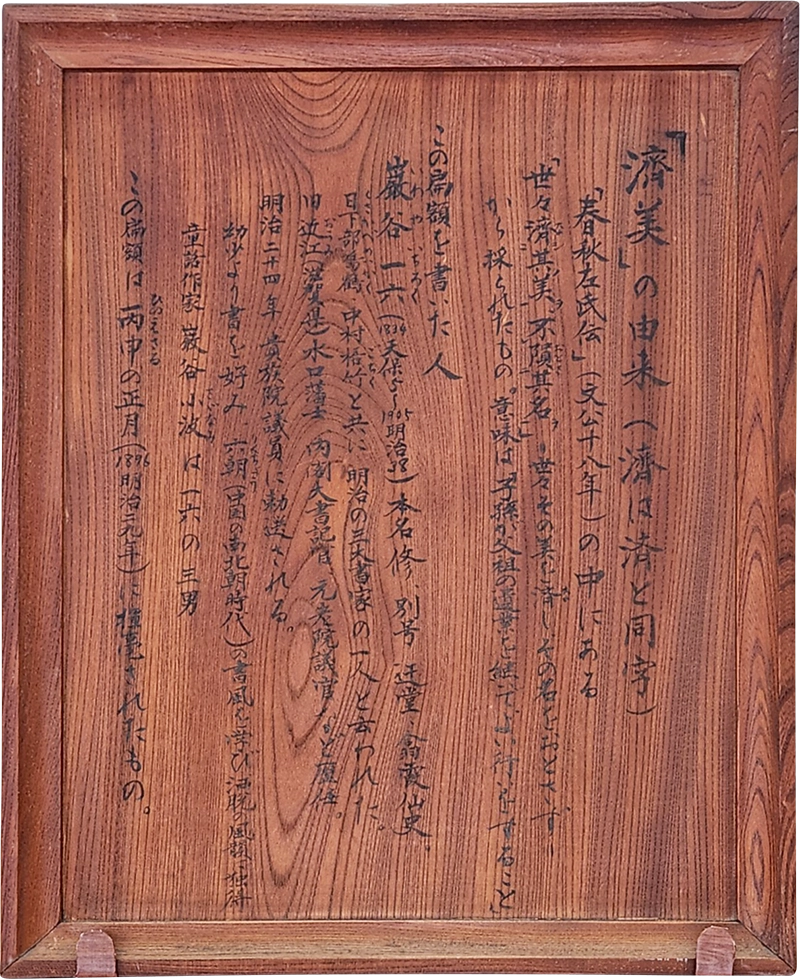 「濟美」の由来(濟は済と同字)
「春秋左氏伝」(文公十八年)の中にある
「世々濟其美、不隕其名」=世々その美を済しその名をおとさず=
から採られたもの。意味は子孫が父祖の遺業を継いでよい行いをすること
この扁額を書いた人
巖谷一六(1834天保5〜1905明治38)本名修、別号 迂堂、翁霞仙史。
日下部鳴鶴、中村梧竹と共に明治の三大書家の一人と云われた。
旧近江(滋賀県)水口藩士 内閣大書記官、元老院議官など歴任。
明治二十四年 貴族院議員に勅選される。
幼少より書を好み、六朝(中国の南北朝時代)の書風を学び洒脱の風韻
童話作家 巖谷小波は一六の三男
この扁額は、丙申の正月(1896明治二九年)に揮毫されたもの。